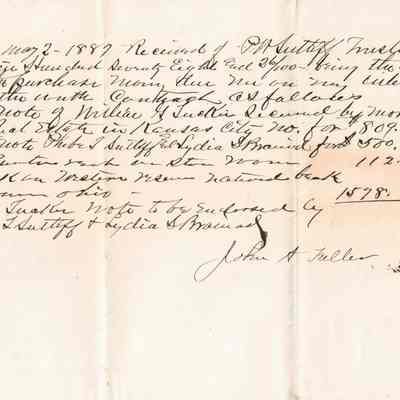 May 2 - 1887 Received of P W Sutliff Trustee
Hundred Seventy Eight and 26/100 - being the
purchase money due me on my
the with Contract as follows
Note of Millie H Tucker secured by Mor
al Estate in Kansas City Mo. for 809.
Note Phebe L Sutliff & Lydia S Brainard for 500.
rent in Store Room 112
on Western reserve national bank
Ohio - 1578.
Tucker Note to be Endorsed by
L Sutliff & Lydia S Brainard
John A Fuller